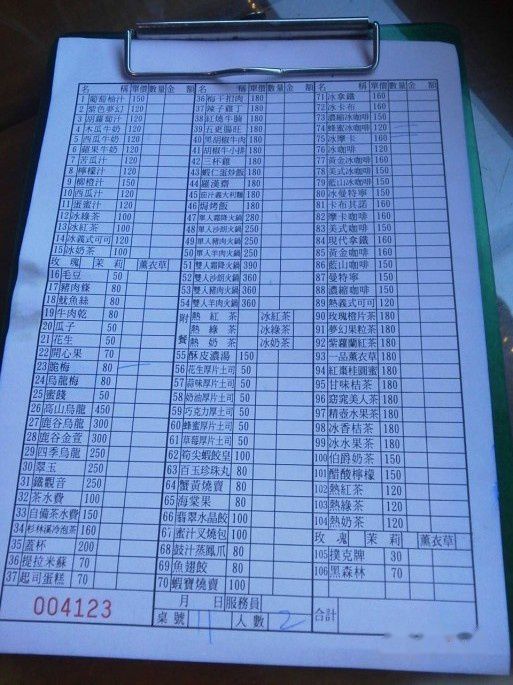 名 稱 單價 數量 金 額
1 葡萄柚汁 150
2 紫色夢幻 120
3 胡蘿蔔汁 120
4 木瓜牛奶 120
5 西瓜牛奶 120
6 蘋果牛奶 120
7 苦瓜汁 120
8 檸檬汁 120
9 柳橙汁 150
10 西瓜汁 120
11 蛋蜜汁 120
12 冰綠茶 100
13 冰紅茶 100
14 冰義式可可 120
15 冰奶茶 100
玫 瑰 茉 莉 薰衣草
16 毛豆 50
17 豬肉條 80
18 魷魚絲 80
19 牛肉乾 80
20 瓜子 50
21 花生 50
22 開心果 70
23 脆梅 80
24 烏龍梅 80
25 蜜餞 50
26 高山烏龍 450
27 鹿谷烏龍 300
28 鹿谷金萱 300
29 四季烏龍 250
30 翠玉 250
31 鐵觀音 250
32 茶水費 100
33 自備茶水費 150
34 杉林溪冷泡茶 160
35 蓋杯 200
36 提拉米蘇 70
37 起司蛋糕 70
004123
名 稱 單價 數量 金 額
36 梅干扣肉 180
37 辣子雞丁 180
38 紅燒牛腩 180
39 五更腸旺 180
40 黑胡椒牛肉 180
41 胡椒牛小排 180
42 三杯雞 180
43 蝦仁蛋炒飯 180
44 羅漢齋 180
45 茄汁義大利麵 180
46 焗烤飯 180
47 單人霜降火鍋 280
48 單人沙朗火鍋 250
49 單人豬肉火鍋 250
50 單人羊肉火鍋 250
51 雙人霜降火鍋 390
52 雙人沙朗火鍋 360
53 雙人豬肉火鍋 360
54 雙人羊肉火鍋 360
附餐
熱 紅 茶 冰紅茶
熱 綠 茶 冰綠茶
熱 奶 茶 冰奶茶
55 酥皮濃湯 150
56 花生厚片土司 50
57 蒜味厚片土司 50
58 奶油厚片土司 50
59 巧克力厚土司 50
60 蜂蜜厚片土司 50
61 草莓厚片土司 50
62 筍尖蝦餃皇 100
63 百玉珍珠丸 80
64 蟹黃燒賣 80
65 海棠果 80
66 翡翠水晶餃 100
67 蜜汁叉燒包 100
68 豉汁蒸鳳爪 80
69 魚翅餃 80
70 蝦寶燒賣 100
月 日 服務員
桌號 11 人數 2
名 稱 單價 數量 金 額
71 冰拿鐵 160
72 冰卡布 160
73 濃縮冰咖啡 150
74 蜂蜜冰咖啡 120
75 冰摩卡 160
76 冰咖啡 120
77 黃金冰咖啡 160
78 美式冰咖啡 150
79 藍山冰咖啡 150
80 冰曼特寧 150
81 卡布其諾 160
82 摩卡咖啡 160
83 美式咖啡 150
84 現代拿鐵 160
85 黃金咖啡 160
86 藍山咖啡 150
87 曼特寧 150
88 濃縮咖啡 150
89 熱義式可可 120
90 玫瑰橙片茶 180
91 夢幻果粒茶 180
92 紫蘿蘭紅茶 180
93 一品薰衣草 180
94 紅棗桂圓蜜 180
95 甘味桔茶 180
96 窈窕美人茶 180
97 精壺水果茶 180
98 冰香桔茶 180
99 冰水果茶 180
100 伯爵奶茶 150
101 醋酸檸檬 150
102 熱紅茶 120
103 熱綠茶 120
104 熱奶茶 120
玫 瑰 茉 莉 薰衣草
105 撲克牌 30
106 黑森林 70
合計